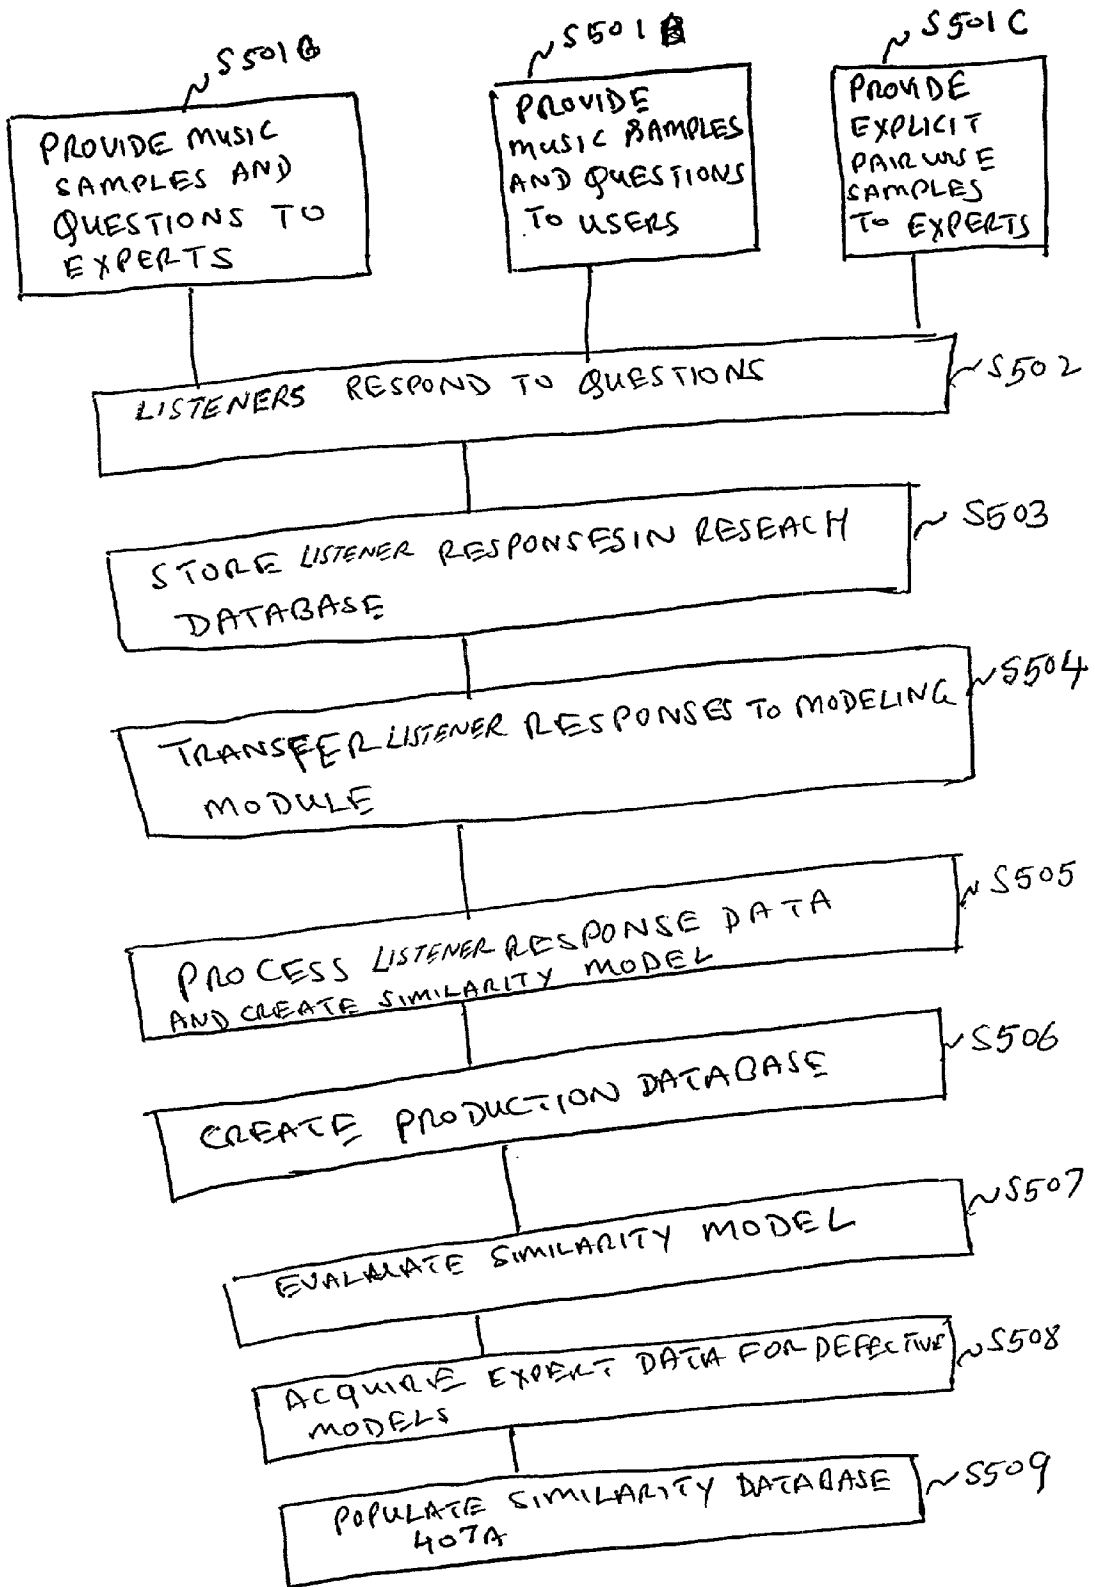 S501
PROVIDE MUSIC
SAMPLES AND
QUESTIONS TO
EXPERTS
S501B
PROVIDE
MUSIC SAMPLES
AND QUESTIONS
TO USERS
S501C
PROVIDE
EXPLICIT
PAIRWISE
SAMPLES
TO EXPERTS
LISTENERS RESPOND TO QUESTIONS
S502
STORE LISTENER RESPONSES IN RESEACH
DATABASE
S503
TRANSFER LISTENER RESPONSES TO MODELING
MODULE
S504
PROCESS LISTENER RESPONSE DATA
AND CREATE SIMILARITY MODEL
S505
CREATE PRODUCTION DATABASE
S506
EVALAUATE SIMILARITY MODEL
S507
ACQUIRE EXPERT DATA FOR DEFECTIVE
MODELS
S508
POPULATE SIMILARITY DATABASE
407A
S509